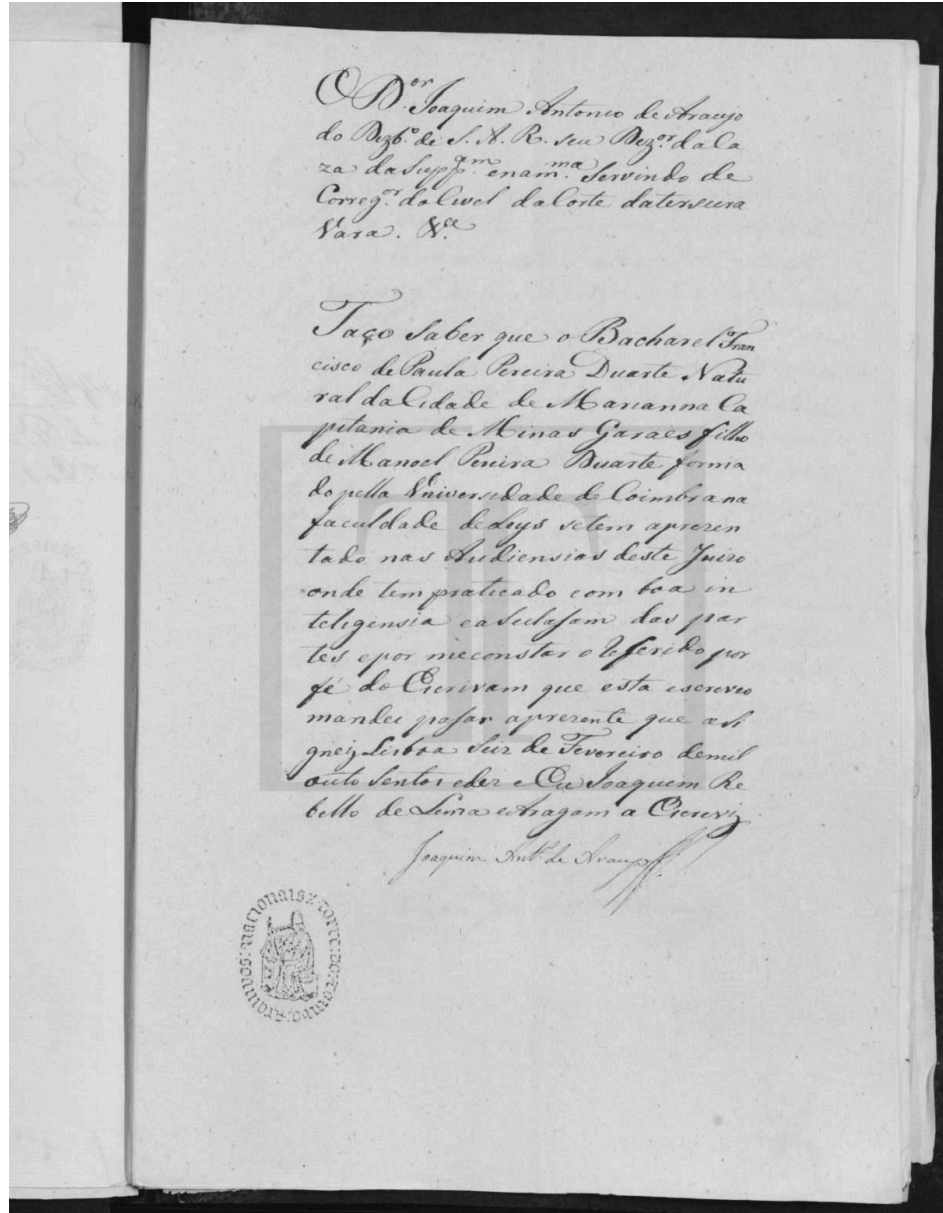 O D.or Joaquim Antonio de Araujo
do Dezb.o de S. A. R. seu Dez.or da Ca
za da Supp.am e na m.ma Servindo de
Correg.or do Civel da Corte da terseira
Vara. &.ca
Faço saber que o Bacharel Fran
cisco de Paula Pereira Duarte Natu
ral da Cidade de Marianna Ca
pitania de Minas Garaes filho
de Manoel Pereira Duarte forma
do pella Universidade de Coimbra na
faculdade de Leys se tem aprezen
tado nas Audiensias deste Juizo
onde tem praticado com boa in
teligensia e aseitasam das par
tes e por me constar o Referido por
fé do Escrivam que esta escreveo
mandei pasar a prezente que asi
gnei Lisboa seis de Fevereiro de mil
outo sentos e dez e Eu Joaquim Re
bello de Lima e Aragam a Escrevi
Joaquim Ant.o de Araujo
ARQUIVOS NACIONAIS TORRE DO TOMBO